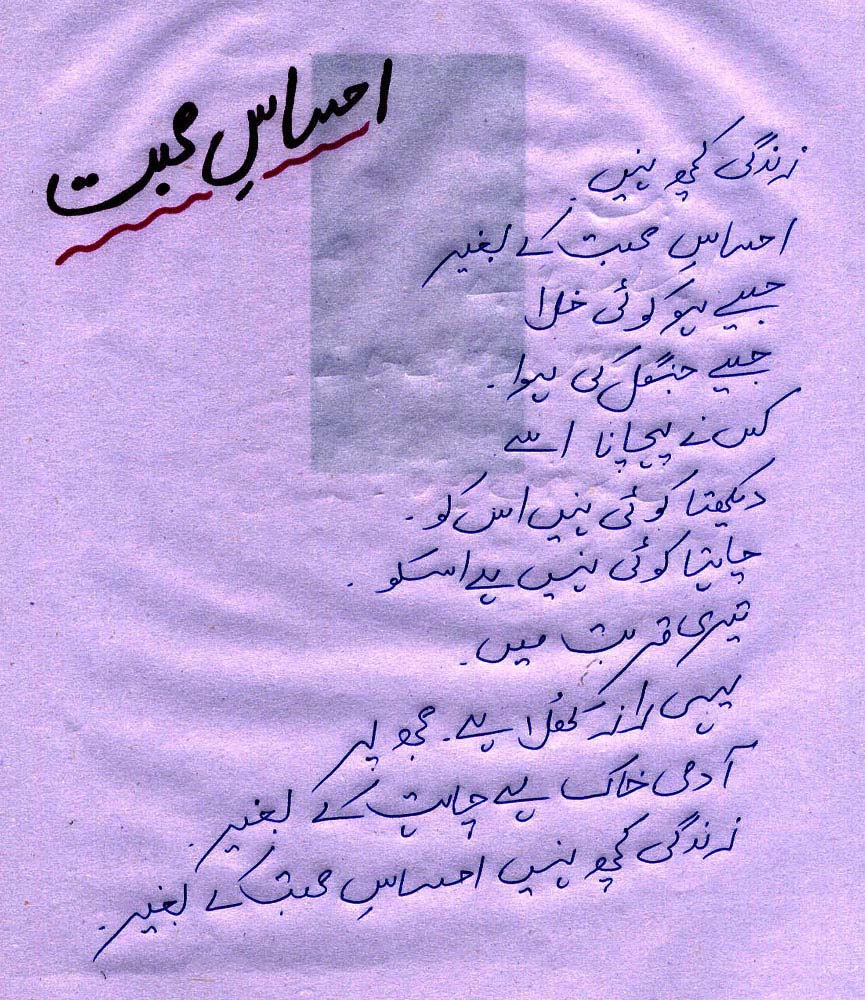 احساسِ محبت
زندگی کچھ نہیں
احساسِ محبت کے بغیر
جیسے ہو کوئی خلا
جیسے جنگل کی ہوا۔
کس نے پہچانا اسے
دیکھتا کوئی نہیں اس کو۔
چاہتا کوئی نہیں ہے اسکو۔
تیری قربت میں۔
یہی راز کھُلا ہے۔ مجھ پر
آدمی خاک ہے چاہت کے بغیر۔
زندگی کچھ نہیں احساسِ محبت کے بغیر۔